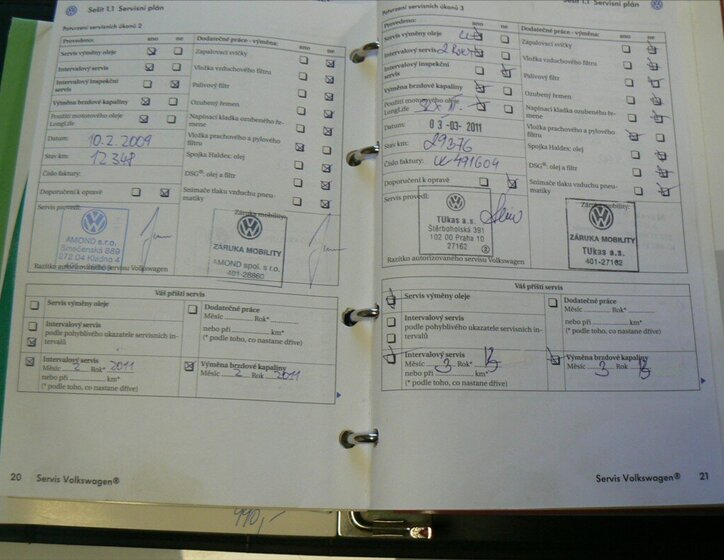 Sešit 1.1 Servisní plán
Potvrzení servisních úkonů 2
Provedeno: ano ne
Servis výměny oleje
Intervalový servis
Intervalový inspekční
servis
Výměna brzdové kapaliny
Použití motorového oleje
LongLife
Datum: 10.2.2009
Stav km: 12348
Číslo faktury:
Doporučení k opravě
Servis provedl:
AMOND s.r.o.
Smečenská 889
272 04 Kladno 4
Razítko autorizovaného servisu Volkswagen
Dodatečné práce - výměna: ano ne
Zapalovací svíčky
Vložka vzduchového
filtru
Palivový filtr
Ozubený řemen
Napínací kladka ozubeného ře-
mene
Vložka prachového a pylového
filtru
Spojka Haldex: olej
DSG®: olej a filtr
Snímače tlaku vzduchu pneu-
matiky
Záruka mobility:
ZÁRUKA MOBILITY
AMOND spol. s r.o.
401-28860
Váš příští servis
Servis výměny oleje
Intervalový servis
podle pohyblivého ukazatele servisních in-
tervalů
Intervalový servis
Měsíc 2 Rok 2011
nebo při km*
(* podle toho, co nastane dříve)
Dodatečné práce
Měsíc Rok*
nebo při km*
(* podle toho, co nastane dříve)
Výměna brzdové kapaliny
Měsíc 2 Rok 2011
20 Servis Volkswagen®
Sešit 1.1 Servisní plán
Potvrzení servisních úkonů 3
Provedeno: ano ne
Servis výměny oleje
Intervalový servis
Intervalový inspekční
servis
Výměna brzdové kapaliny
Použití motorového oleje
LongLife
Datum: 03-03-2011
Stav km: 29376
Číslo faktury: 491604
Doporučení k opravě
Servis provedl:
TUkas a.s.
Štěrboholská 391
102 00 Praha 10
27162
Razítko autorizovaného servisu Volkswagen
Dodatečné práce - výměna: ano ne
Zapalovací svíčky
Vložka vzduchového
filtru
Palivový filtr
Ozubený řemen
Napínací kladka ozubeného ře-
mene
Vložka prachového a pylového
filtru
Spojka Haldex: olej
DSG®: olej a filtr
Snímače tlaku vzduchu pneu-
matiky
Záruka mobility:
ZÁRUKA MOBILITY
TUkas a.s.
401-27162
Váš příští servis
Servis výměny oleje
Intervalový servis
podle pohyblivého ukazatele servisních in-
tervalů
Intervalový servis
Měsíc 3 Rok* 13
nebo při km*
(* podle toho, co nastane dříve)
Dodatečné práce
Měsíc Rok*
nebo při km*
(* podle toho, co nastane dříve)
Výměna brzdové kapaliny
Měsíc 3 Rok 13
Servis Volkswagen® 21